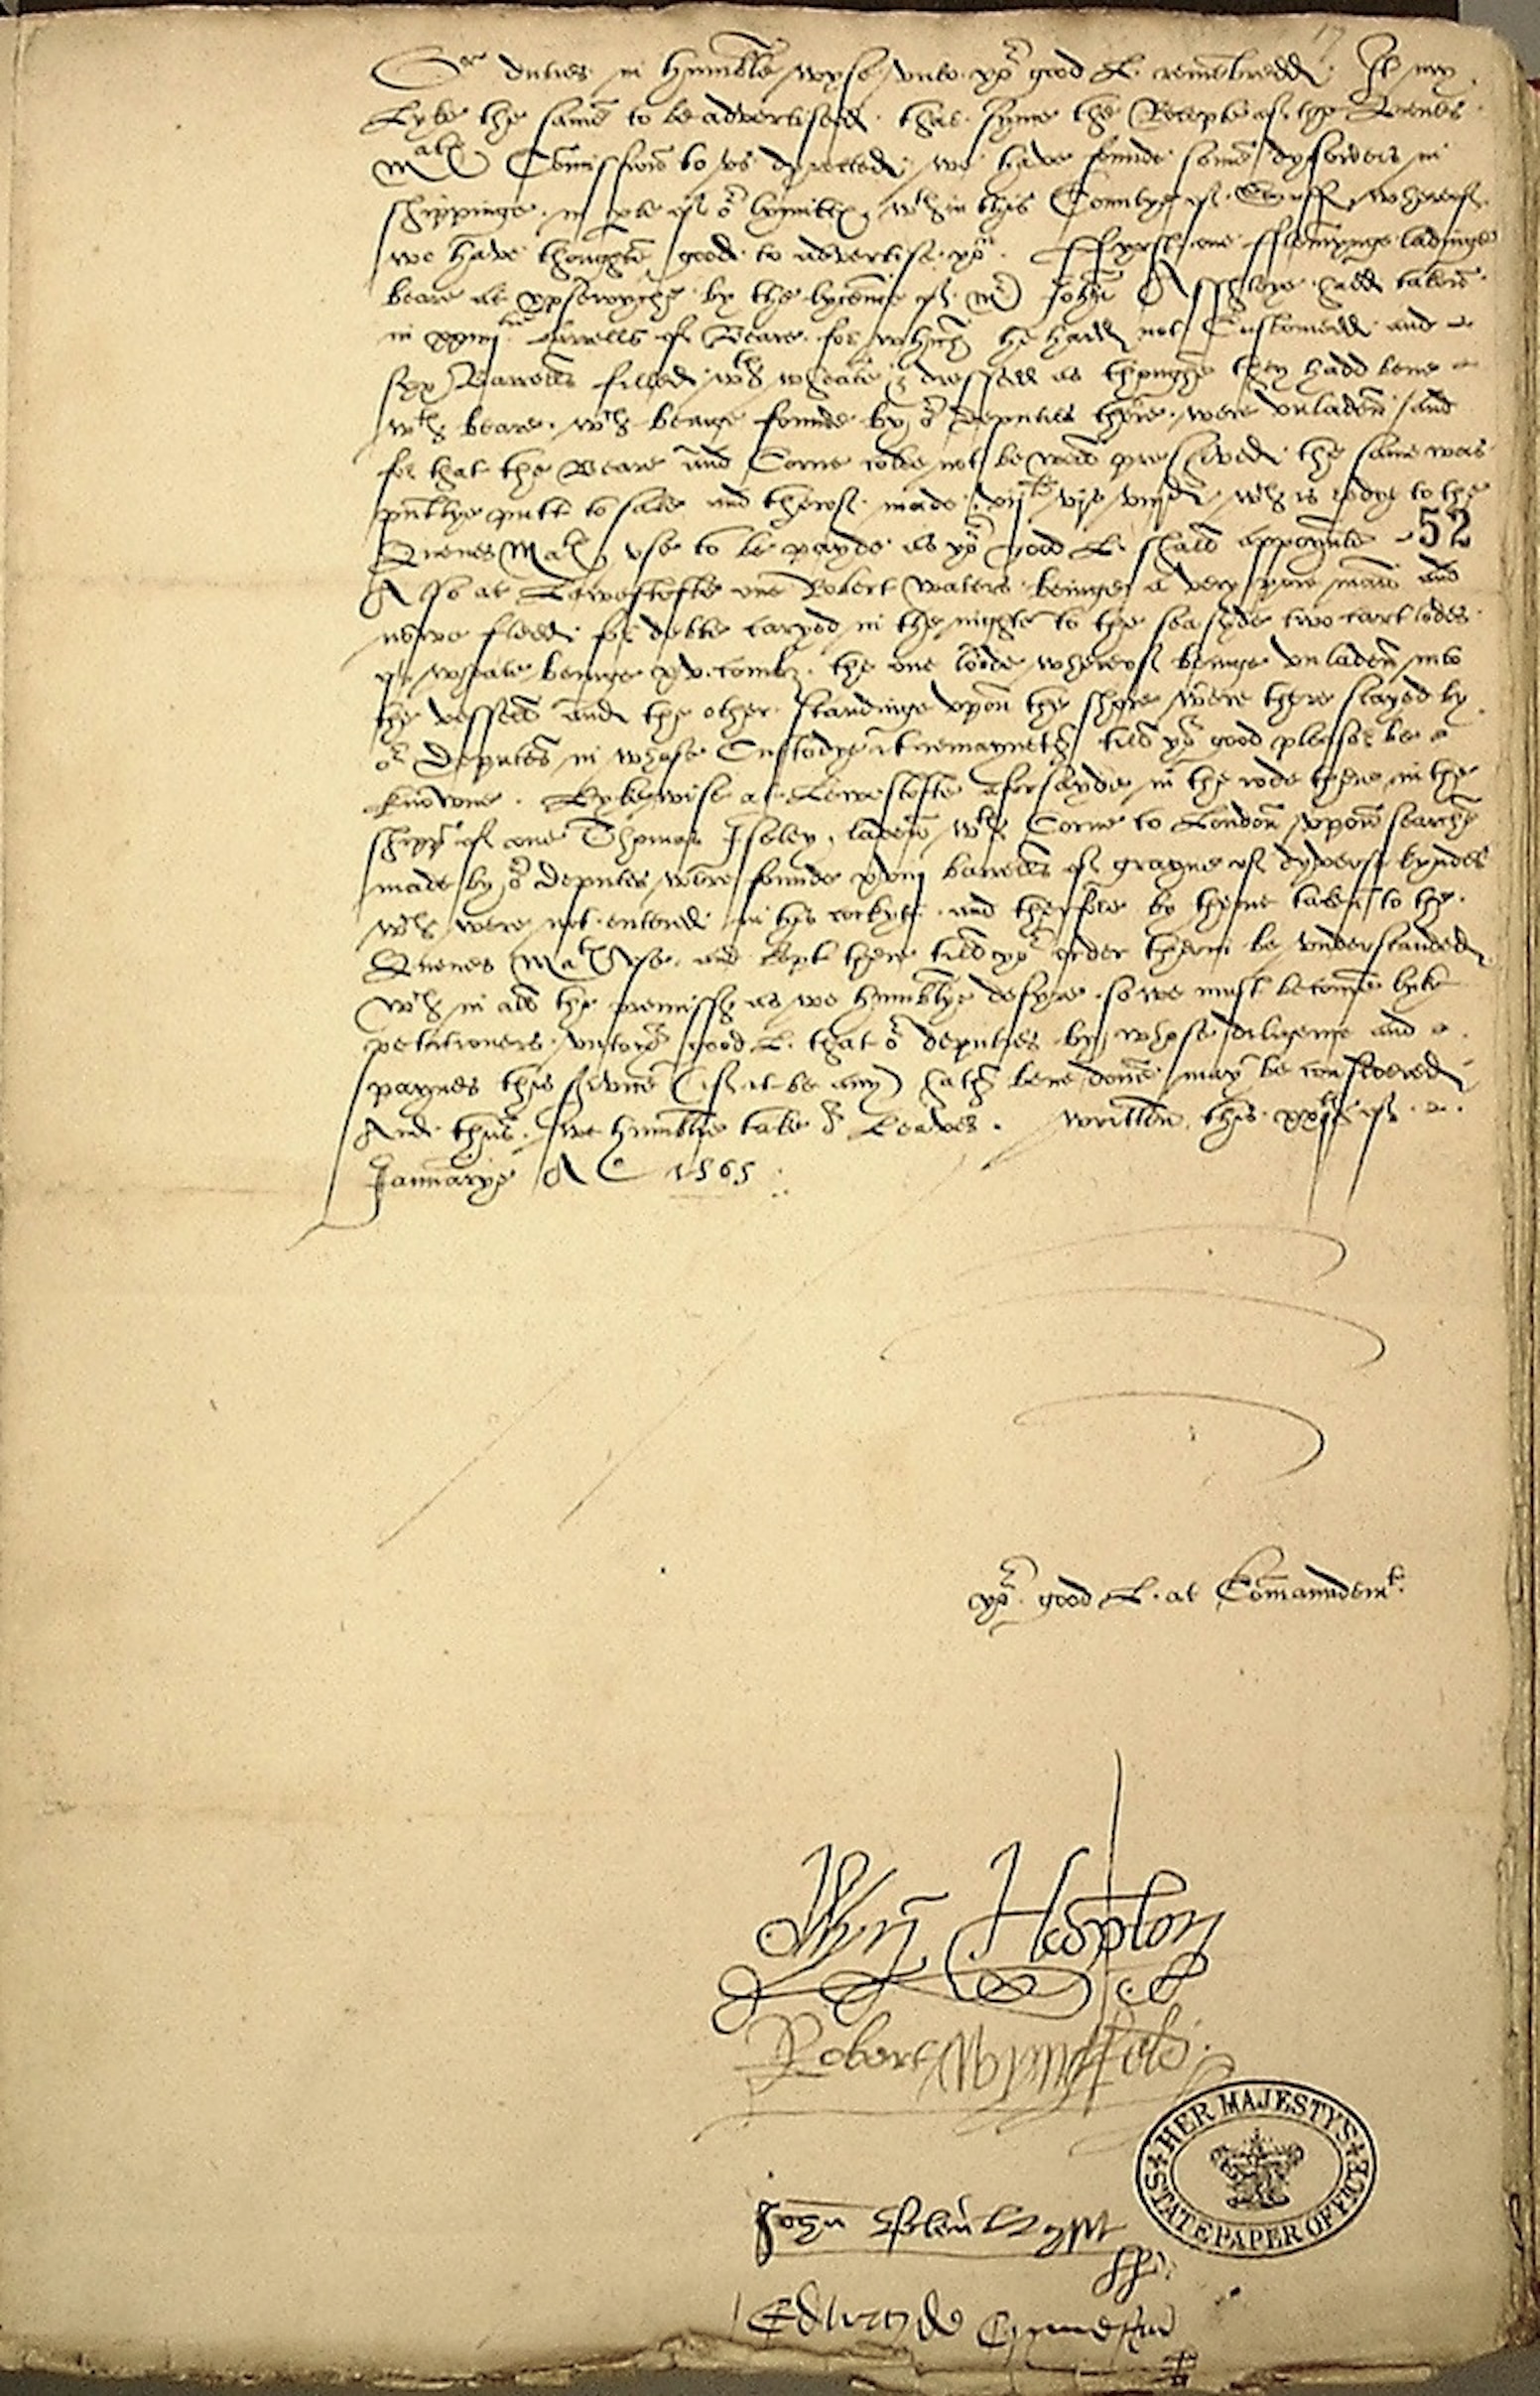 17
Or duties in humble wyse unto yor good L. remembredd. It may
Lyke the same to be advertisedd. that synce the Recepte of the Quenes
Matis Comissione to us dyrectedd we have founde some dysorders in
shippinge in pte of or lymittes wthin this Countye of Suff wherof
we have thoughte good to advertise yor. Ffyrst one fflemynge ladinge
beare at Ypswyche by the lycence of Mr John Assheleye hadd taken
in xxiiij barrells of Beare for which he hadd not Customedd and
syx Barrells filled wth wheate & dressedd as thoughe they hadd bene
wth beare. wch beinge founde by or deputies there were unladen and
for that the Beare and Corne colde not be well preservedd the same was
publye putt to sale and therof made vijli vjs viijd wch is redye to the
Quenes Matis use to be payde as yor good L. shall appoynte
52
Also at Lowestofte one Robert Waters beinge a very pore man and
nowe fledd for debte caryed in the nighte to the sea syde two cart lodes
of wheate beinge xv. combz. the one loode wherof beinge unladen into
the vessell and the other standinge upon the shore were there stayed by
or deputies in whose Custodye it remayneth till yor good pleasor be
knowne. Lykewise at Lowestofte aforsayde in the rode there in the
shipp of one Thomas Iseley, laden wth Corne to London upon searche
made by or deputies were founde xviij barrells of grayne of dyverse kyndes
wch were not entred in his cockytt and therfore by theme taken to the
Quenes Matis use and kept there till yor order therin be understanded
wch in all the premisses as we humblye desyre so we must become lyke
petitioners unto yor good L. that or deputies by whose diligence and
paynes this service (if it be any) hath bene done may be considered
And thus we humblye take or Leaves. Written this xxjth of
Januarye A 1565
yor good L. at Comaundemt
Robert Wyngfeld
HER MAJESTY'S STATE PAPER OFFICE